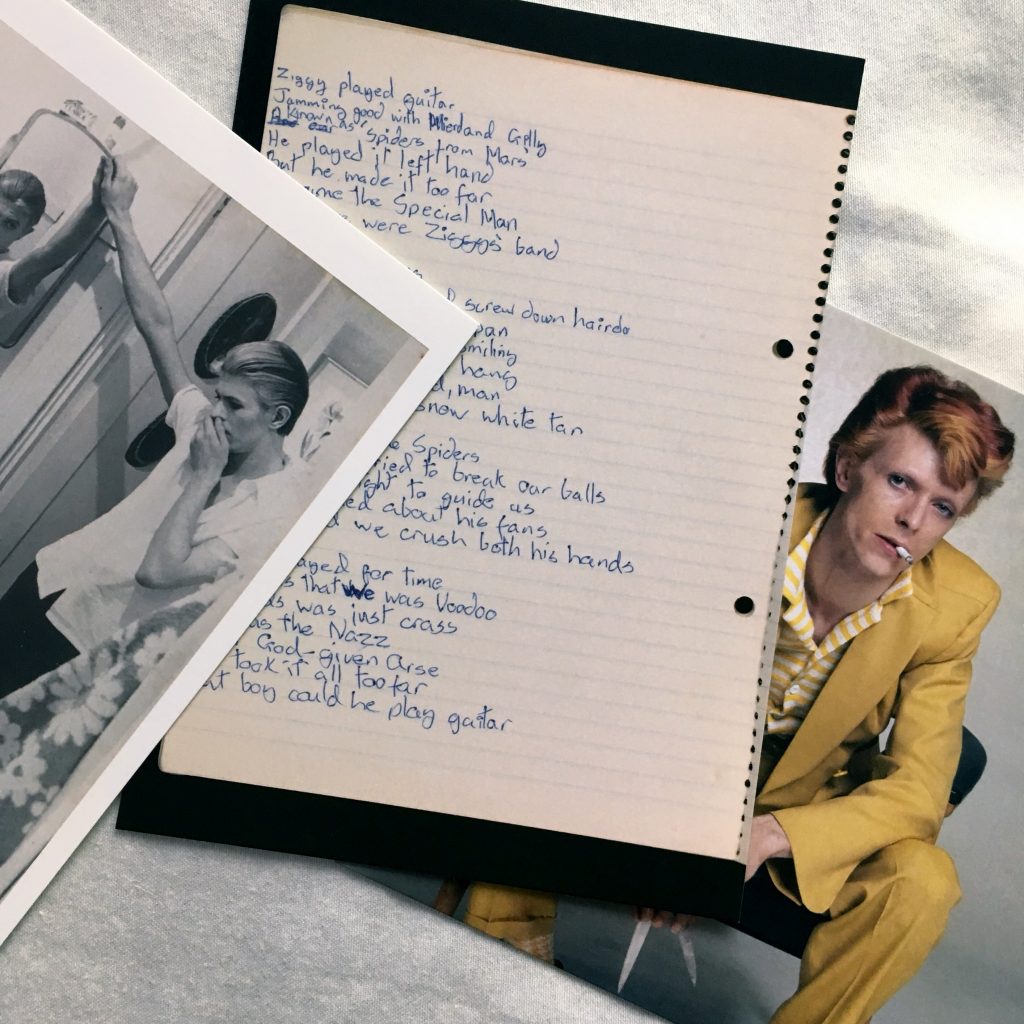 Ziggy played guitar
Jamming good with Wierd and Gilly
A Known as 'Spiders from Mars'
He played it left hand
But he made it too far
the Special Man
were Ziggy's band
screw down hairdo
smiling
hang
man
snow white tan
Spiders
to break our balls
to guide us
about his fans
we crush both his hands
for time
that we was Voodoo
was just crass
the Nazz
God-given Arse
took it all too far
boy could he play guitar